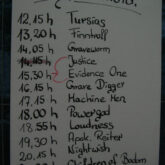 12.15 h Tursias
13.20 h Finntroll
14.05 h Graveworm
14.15 h Justice
15.30 h Evidence One
16.15 h Grave Digger
17.15 h Machine Men
18.00 h Powergod
18.55 h Loudness
19.30 h Apok. Reiter
20.30 h Nightwish
Children of Bodom